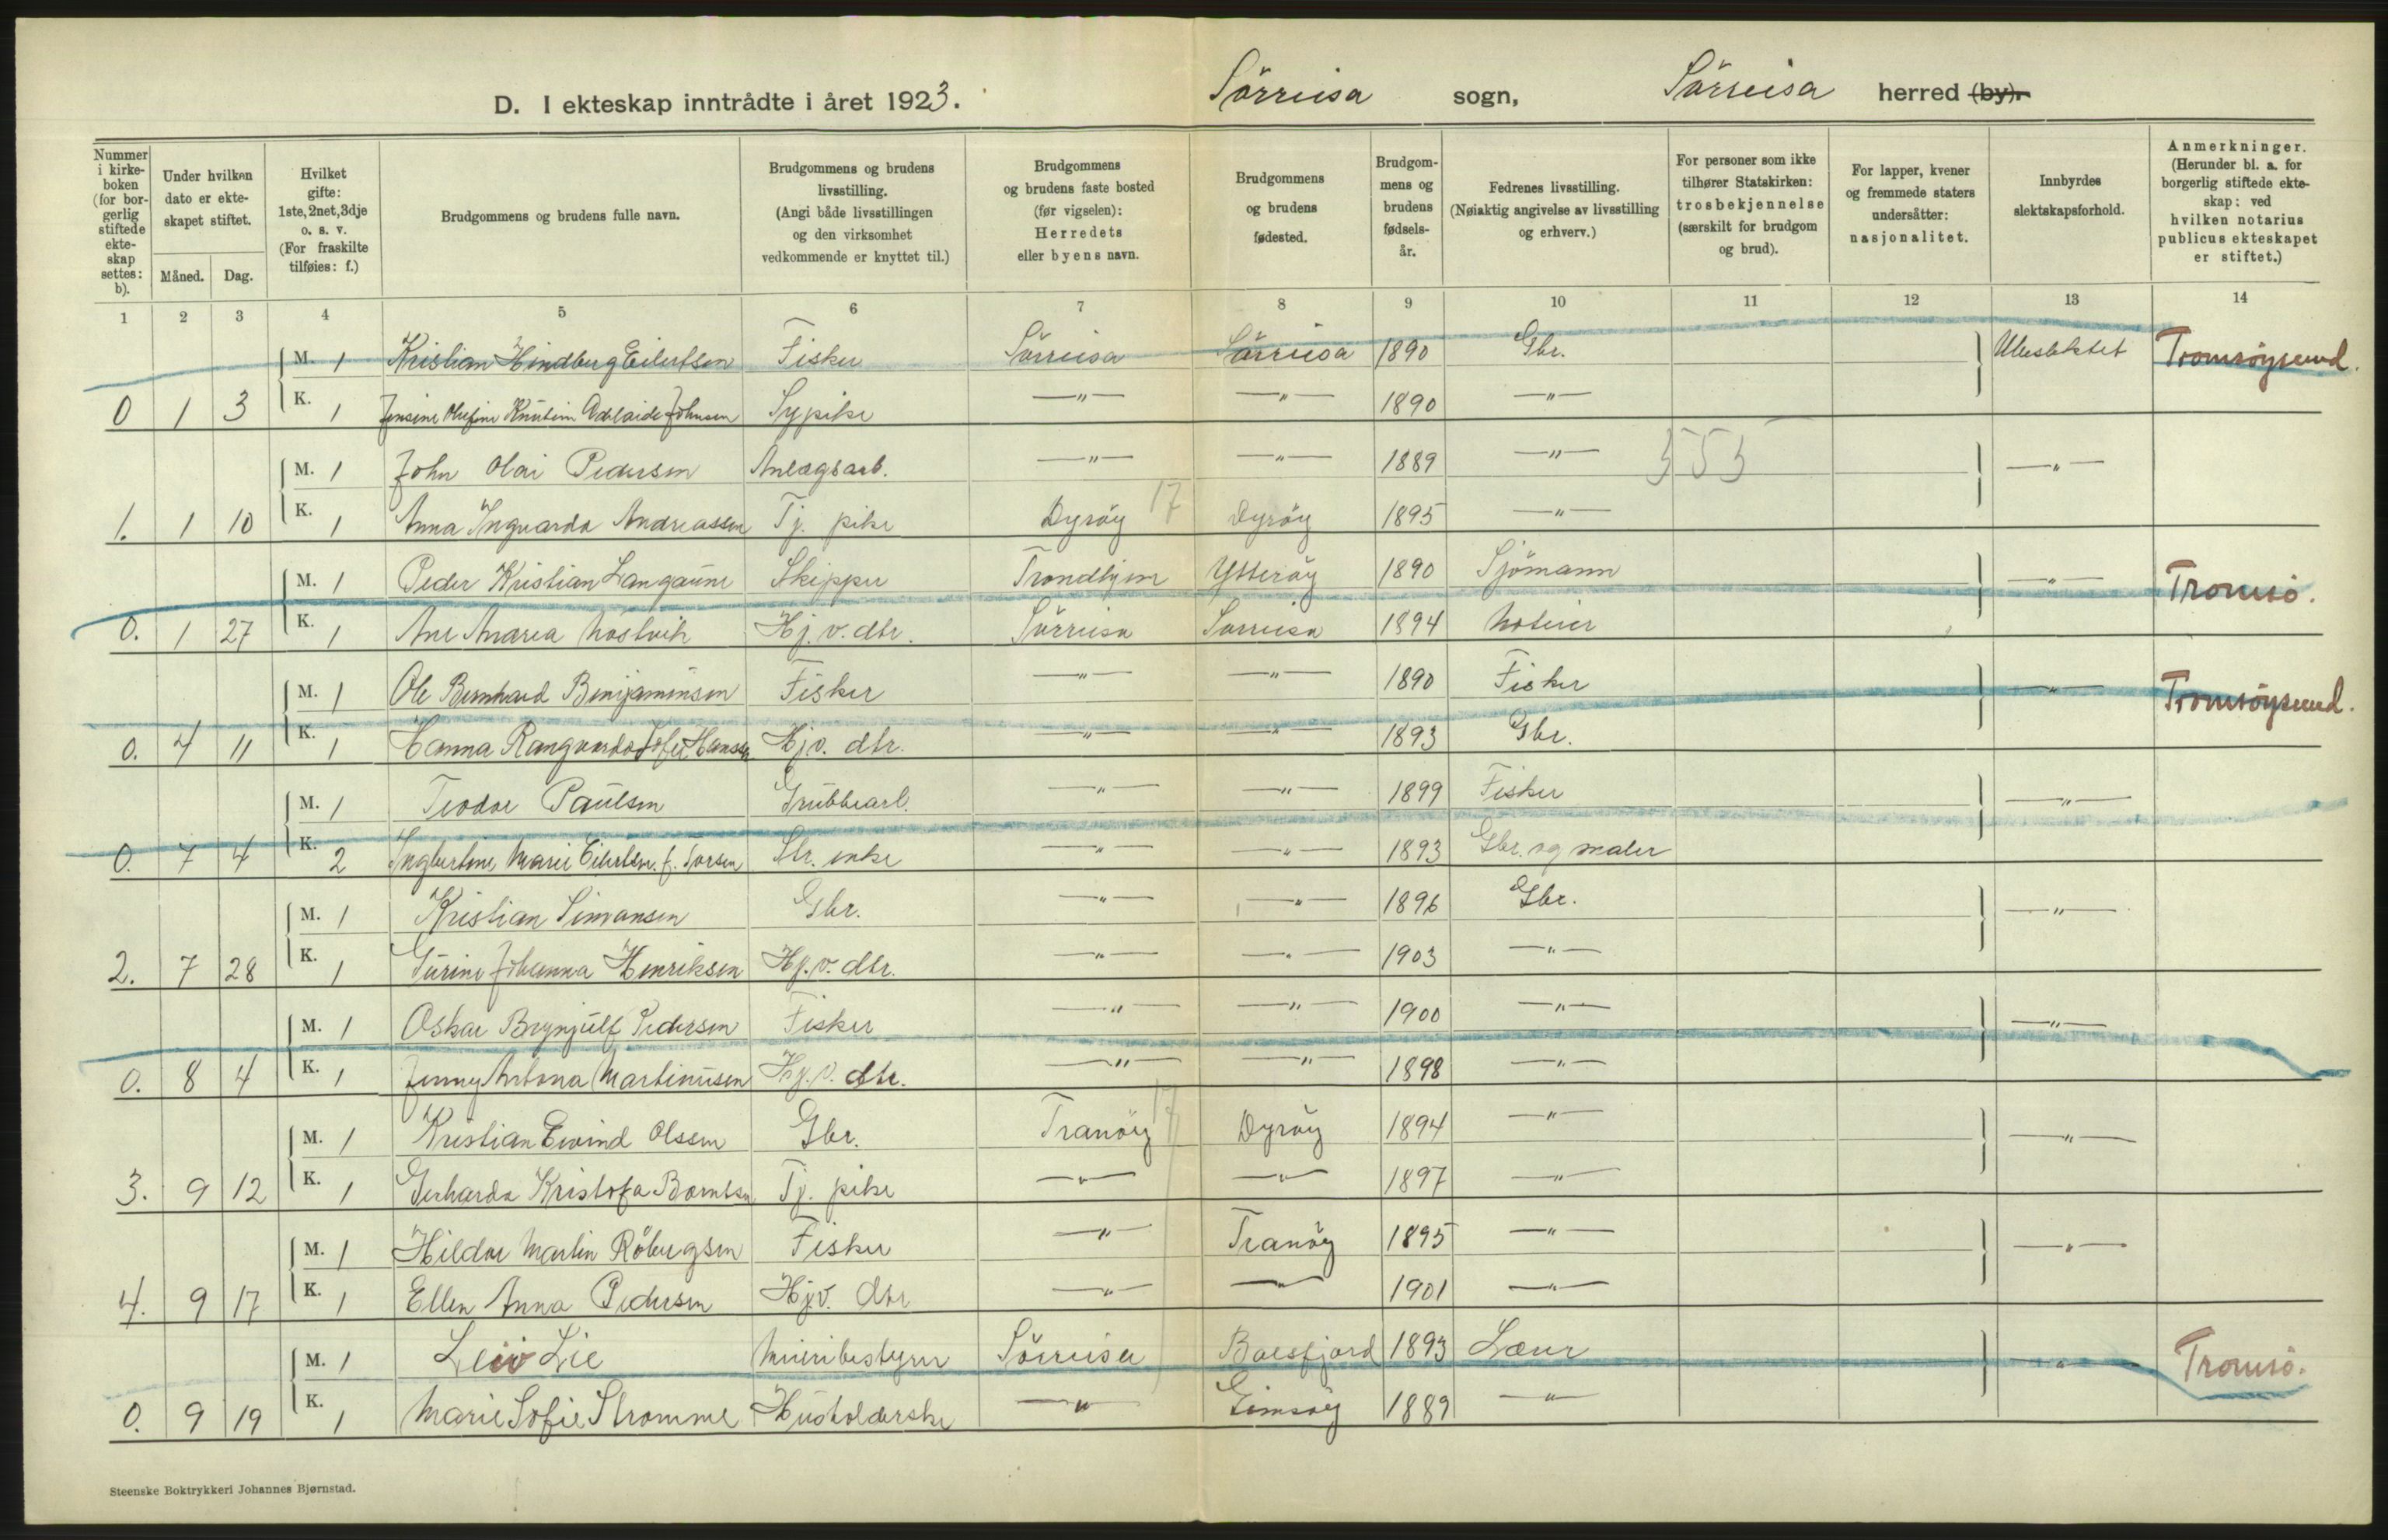 D. I ekteskap inntrådte i året 1923. Sørreisa sogn, Sørreisa herred (by).
Nummer i kirkeboken (for borgerlig stiftede ekteskap settes: b).
Under hvilken dato er ekteskapet stiftet.
Måned. Dag.
Hvilket gifte: 1ste, 2net, 3dje o. s. v. (For fraskilte tilføies: f.)
Brudgommens og brudens fulle navn.
Brudgommens og brudens livsstilling. (Angi både livsstillingen og den virksomhet vedkommende er knyttet til.)
Brudgommens og brudens faste bosted (før vigselen): Herredets eller byens navn.
Brudgommens og brudens fødested.
Brudgommens og brudens fødselsår.
Fedrenes livsstilling. (Nøiaktig angivelse av livsstilling og erhverv.)
For personer som ikke tilhører Statskirken: trosbekjennelse (særskilt for brudgom og brud).
For lapper, kvener og fremmede staters undersåtter: nasjonalitet.
Innbyrdes slektskapsforhold.
Anmerkninger. (Herunder bl. a. for borgerlig stiftede ekteskap: ved hvilken notarius publicus ekteskapet er stiftet.)
1 2 3 4 5 6 7 8 9 10 11 12 13 14
M. 1 Kristian Hindberg Eilertsen Fisker Sörreisa Sörreisa 1890 Gbr. Ubeslektet Tromsöysund.
0 1 3 K. 1 Jensine Olufine Adelaide Johnsen Sypike —"— —"— 1890 —"—
M. 1 John Olai Pedersen Anlegsarb. —"— —"— 1889 —"— 353 —"—
1. 1 10 K. 1 Anna Ingvarda Andreassen Tj. pike Dyröy 17 Dyröy 1895 —"—
M. 1 Peder Kristian Langaune Skipper Trondhjem Ytteröy 1890 Sjömann —"— Tromsö.
0. 1 27 K. 1 Ane Marea Hj. v. dtr. Sörreisa Sörreisa 1894
M. 1 Ole Bernhard Benjaminsen Fisker —"— —"— 1890 Fisker —"— Tromsöysund.
0. 4 11 K. 1 Hanna Rangvarda Hansen Hj.v. dtr. —"— —"— 1893 Gbr.
M. 1 Teodor Paulsen Grubbearb. —"— —"— 1899 Fisker —"—
0. 7 4 K. 2 Ingbertine Marie Eilertsen f. Torsen Gbr. enke —"— —"— 1893 Gbr. og maler
M. 1 Kristian Simonsen Gbr. —"— —"— 1896 Gbr. —"—
2. 7 28 K. 1 Gurine Johanna Henriksen Hj. v. dtr. —"— —"— 1903 —"—
M. 1 Oskar Brynjulf Pedersen Fisker —"— —"— 1900 —"— —"—
0. 8 4 K. 1 Jenny Antona Martinusen Hj. v. dtr. —"— —"— 1898 —"—
M. 1 Kristian Eivind Olssen Gbr. Tranöy 17 Dyröy 1894 —"— —"—
3. 9 12 K. 1 Gerharda Kristofa Berntsen Tj. pike —"— —"— 1897 —"—
M. 1 Hildor Martin Röbergsen Fisker —"— Tranöy 1895 —"— —"—
4. 9 17 K. 1 Ellen Anna Pedersen Hj.v. dtr —"— —"— 1901 —"—
M. 1 Leiv Lie Meieribestyrer Sörreisa Balsfjord 1893 Lærer —"— Tromsö.
0. 9 19 K. 1 Marie Sofie Strømme Husholderske —"— Gimsöy 1889 —"—
Steenske Boktrykkeri Johannes Bjørnstad.